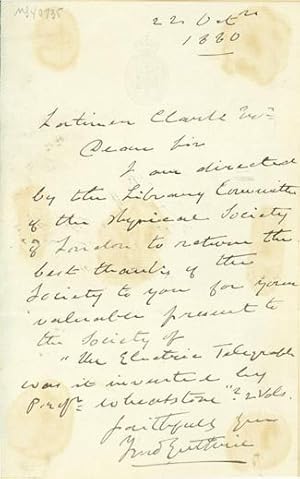 22 Octr
1880
Latimer Clark Esqre
Dear Sir
I am directed
by the Library Committee
of the Physical Society
of London to return the
best thanks of the
Society to you for your
valuable present to
the Society of
"The Electric Telegraph
was it invented by
Profr. Wheatstone"? 2 Vols.
faithfully yrs
Fred Guthrie